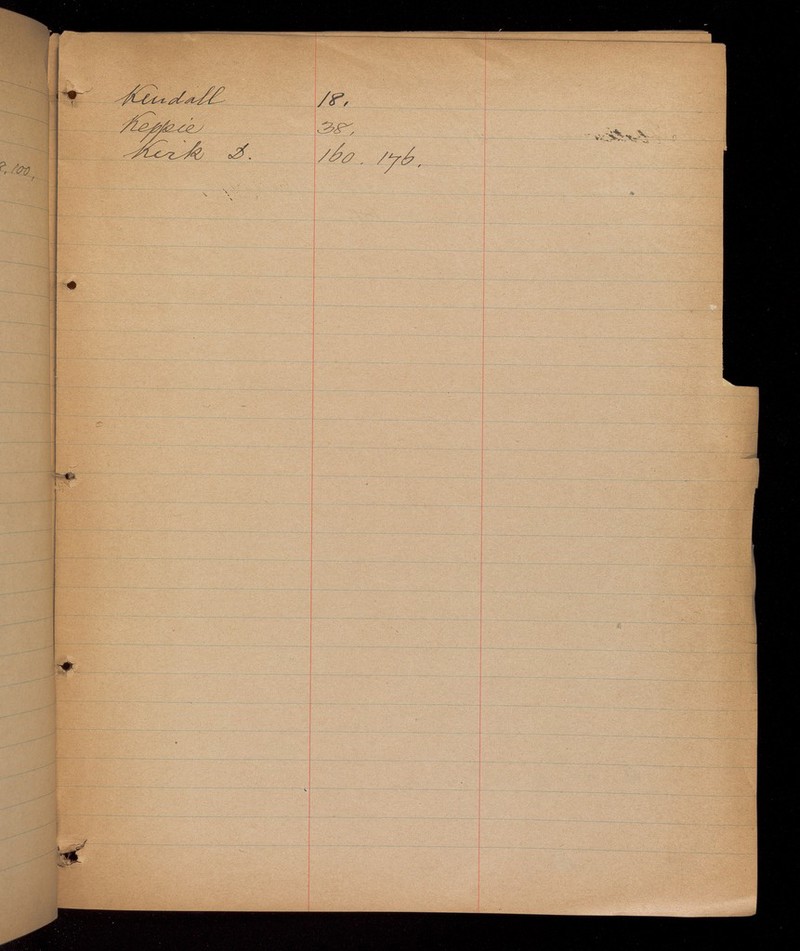 Kendall 18.
Keppie 38.
Kirk D. 160. 176.
100.